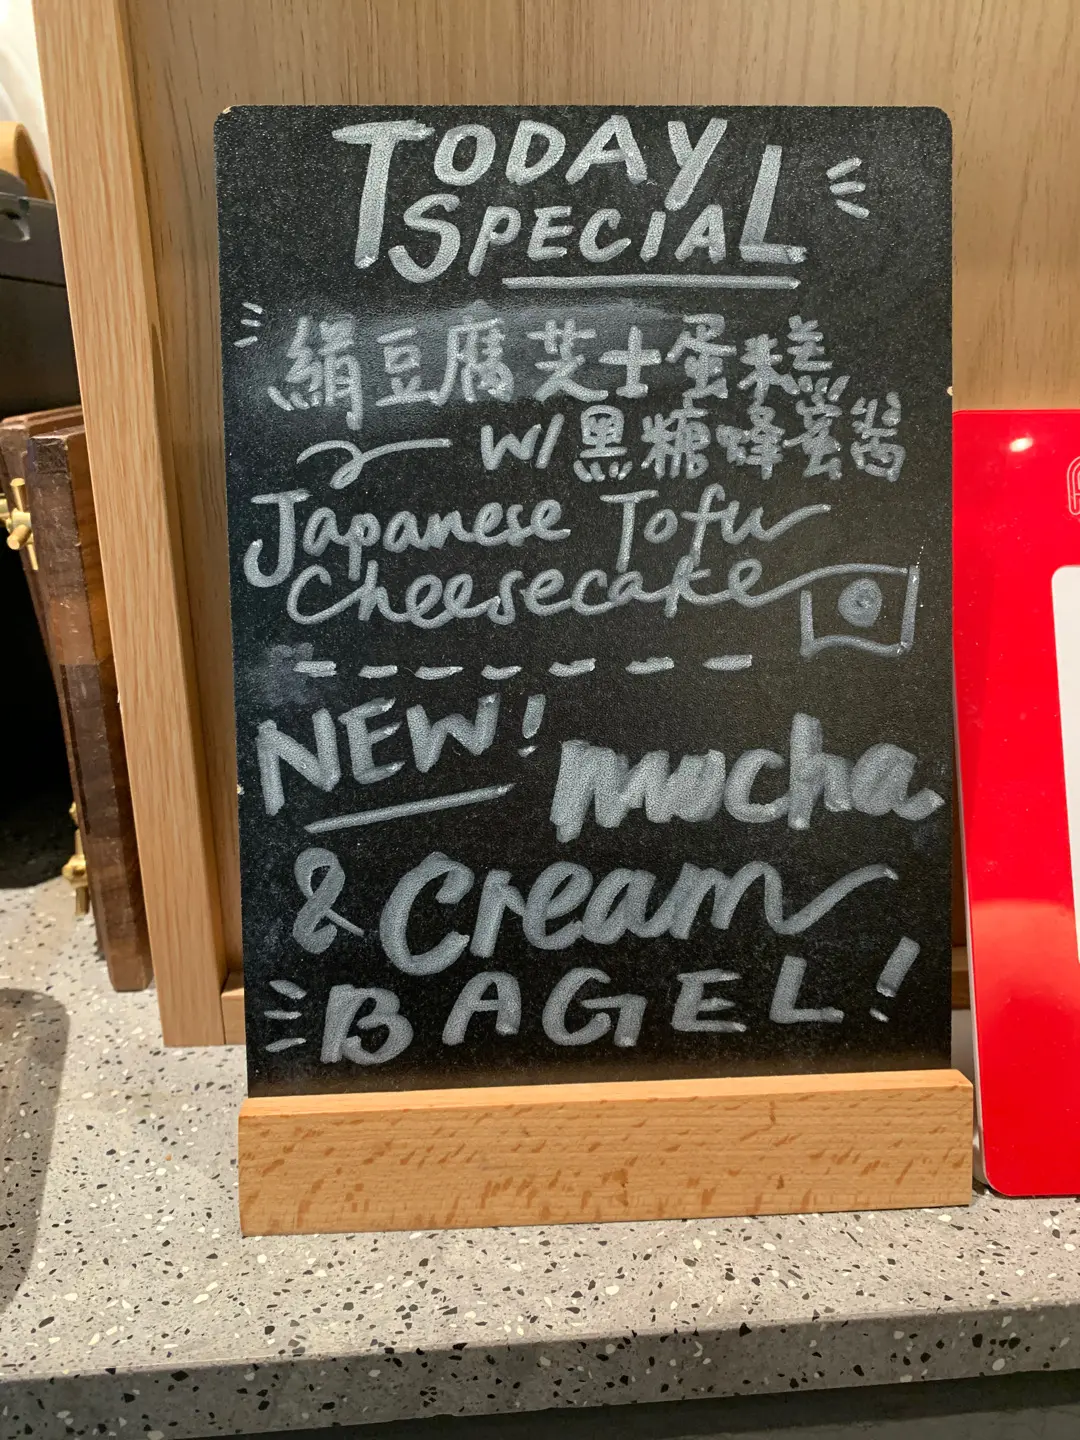 TODAY
SPECIAL
絹豆腐芝士蛋糕
w/ 黑糖蜂蜜醬
Japanese Tofu
Cheesecake
NEW! mocha
& Cream
BAGEL!